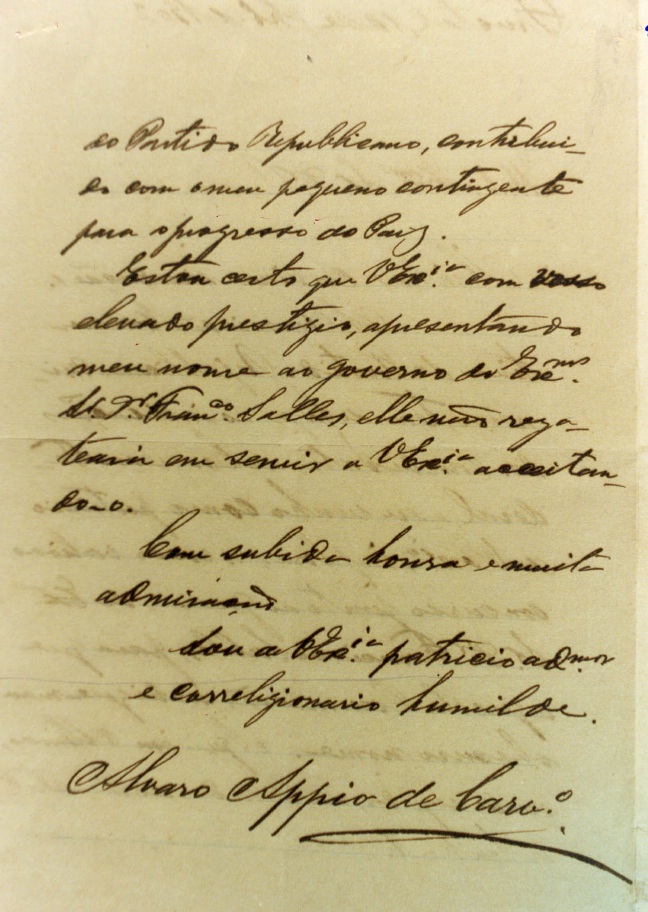 do Partido Republicano, contribui-
do com o meu pequeno contingente
para o progresso do Paiz.
Estou certo que V Exᶜⁱᵃ. com vosso
elevado prestigio, apresentando
meu nome ao governo do Exᵐº.
Sr. Dʳ. Franᶜº. Salles, elle não rega-
teará em servir a V Exᶜⁱᵃ. acceitan-
do-o.
Com subida honra e muita
admiração
Sou de V Exᶜⁱᵃ. patricio adᵐᵒʳ
e correligionario humilde.
Alvaro Appio de Carvº.